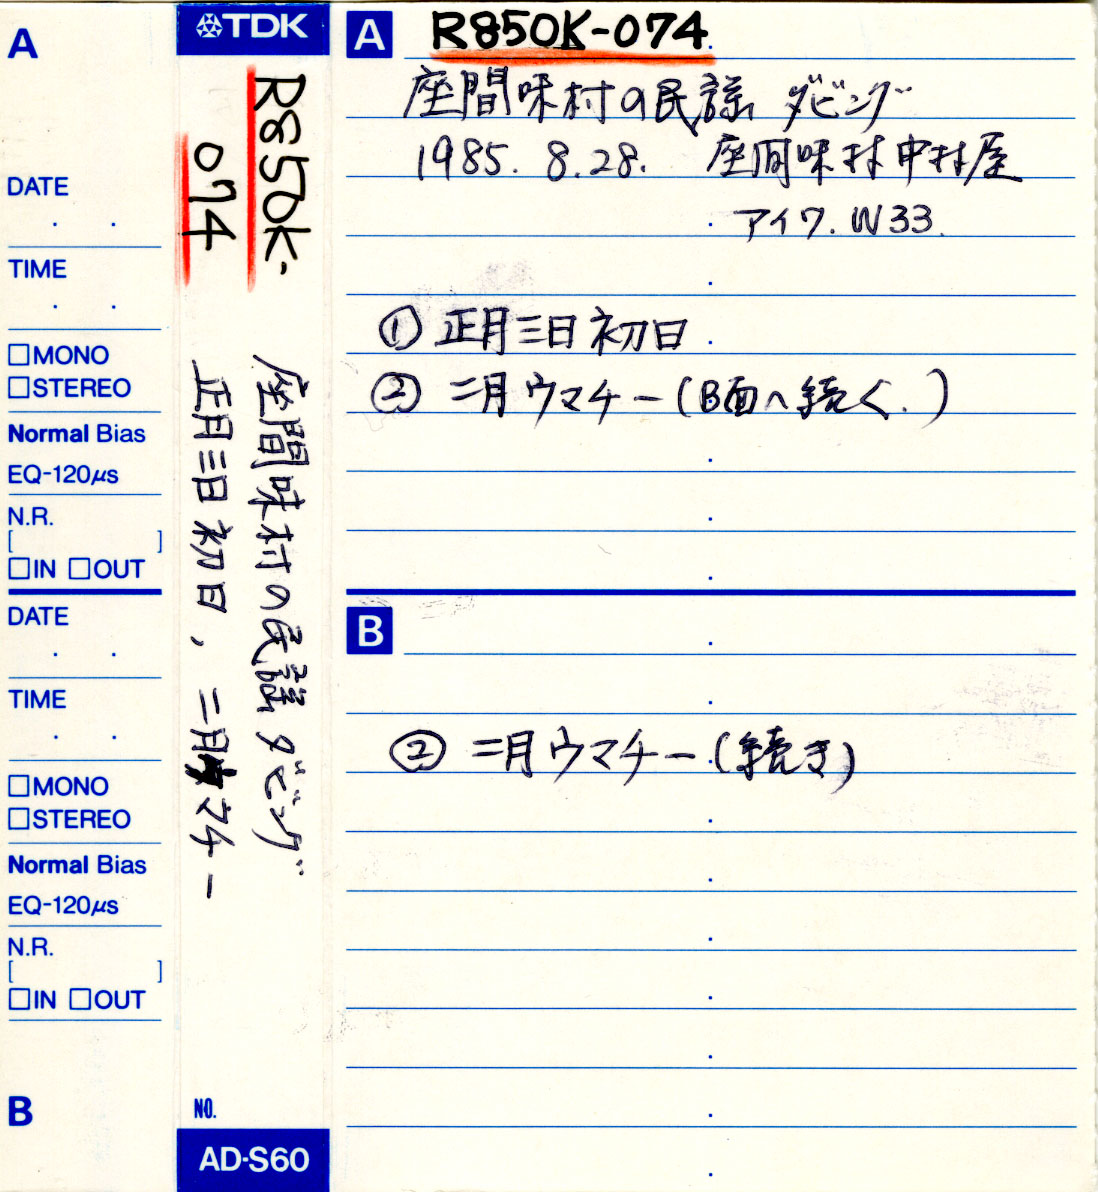 A
DATE
. .
TIME
. .
□MONO
□STEREO
Normal Bias
EQ-120μs
N.R.
[ ]
□IN □OUT
DATE
. .
TIME
. .
□MONO
□STEREO
Normal Bias
EQ-120μs
N.R.
[ ]
□IN □OUT
B
TDK
R850K-
074
座間味村の民謡 ダビング
正月三日初日, 二月ウマチー
NO.
AD-S60
A R850K-074
座間味村の民謡 ダビング
1985. 8.28. 座間味村中村屋
アイワ. W33.
① 正月三日初日
② 二月ウマチー(B面へ続く.)
B
② 二月ウマチー(続き)